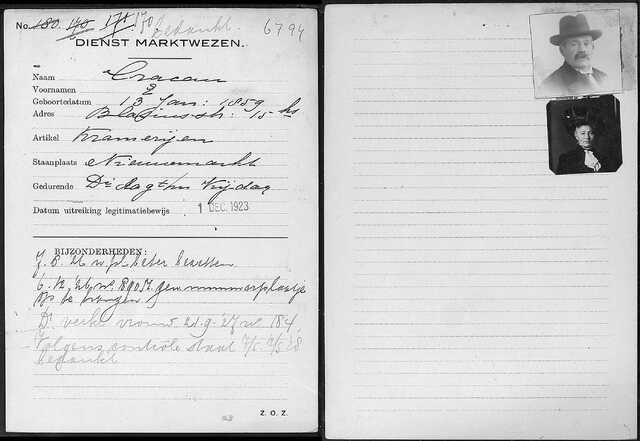 No. 180. 140 171 170 bedankt. 6794
DIENST MARKTWEZEN.
Naam Cracau
Voornamen E
Geboortedatum 13 Jan: 1859
Adres Blasiusstr: 15 hs
Artikel Kramerijen
Staanplaats Nieuwemarkt
Gedurende Dinsdag t/m Vrijdag
Datum uitreiking legitimatiebewijs 1 DEC. 1923
BIJZONDERHEDEN:
pl.
6. 12. no. 8905 geen nummerplaatje
op te hangen
verkl. vrouw 21.9.27 no. 184.
Volgens controle staat 7/5 28
bedankt
Z. O. Z.